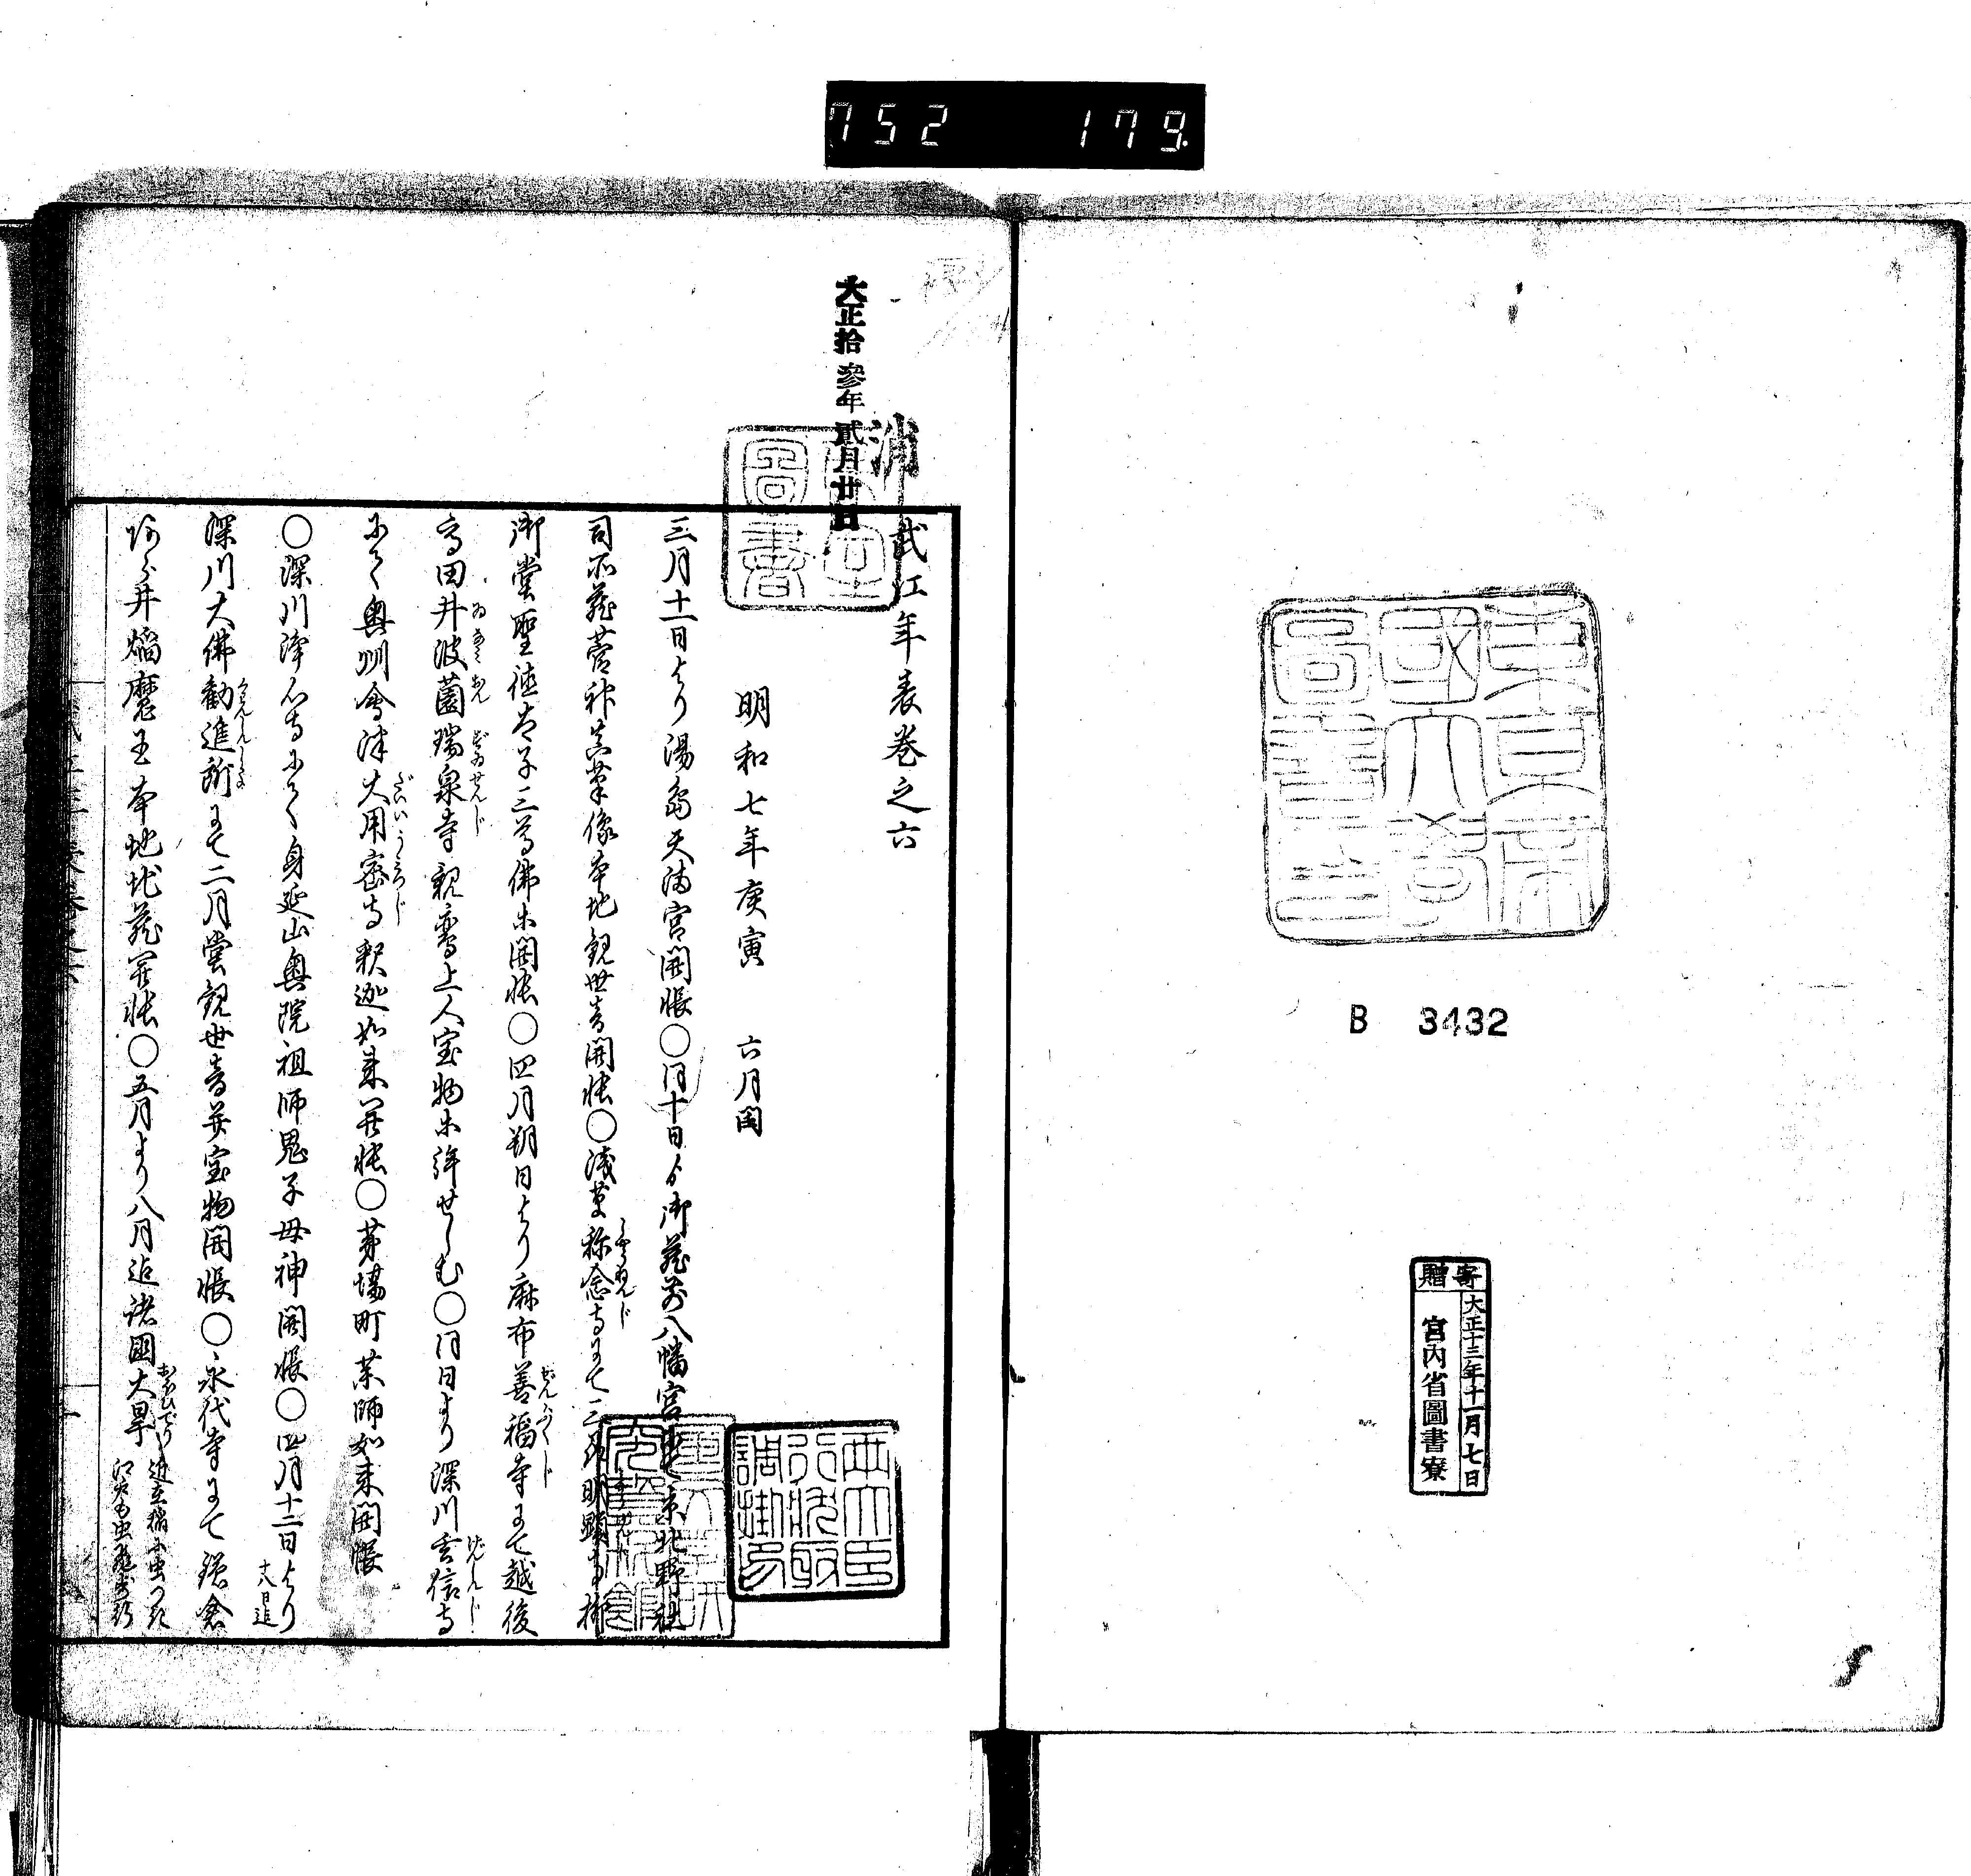 752 179
東京帝國大學圖書印
B 3432
寄贈
大正十三年十一月七日
宮內省圖書寮
大正拾參年貳月廿日
消
武江年表巻之六
明和七年庚寅 六月閏
三月十一日より湯島天満宮開帳〇同十日より御蔵前八幡宮にて京北野社
司所蔵菅神真筆像本地観世音開帳〇浅草称念寺にて三州明眼寺柳
御堂聖徳太子三尊佛木開帳〇四月朔日より麻布善福寺にて越後
高田井波園瑞泉寺親鸞上人宝物木拝せしむ〇同日より深川玄信寺
にて奥州會津大用密寺釈迦如来開帳〇茅場町薬師如来開帳
〇深川浄心寺にて身延山奥院祖師鬼子母神開帳〇四月十二日より十八日迄
深川大佛勧進所にて二月堂観世音并宝物開帳〇永代寺にて鎌倉
新井焔魔王本地地蔵開帳〇五月より八月迄諸國大旱